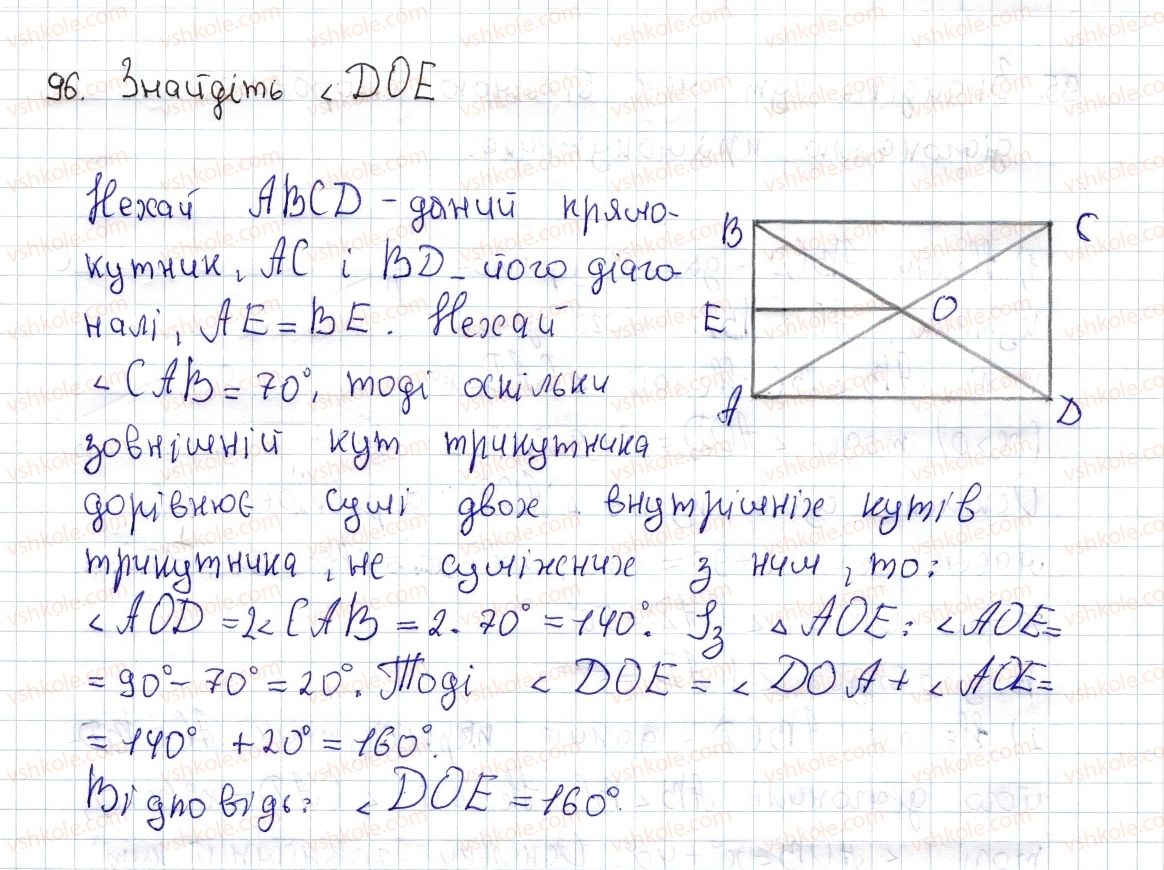 96. Знайдіть < DOE
Нехай ABCD – даний прямо-
кутник, AC і BD – його діаго-
налі, AE = BE. Нехай
< CAB = 70°, тоді оскільки
зовнішній кут трикутника
дорівнює сумі двох внутрішніх кутів
трикутника, не суміжних з ним, то:
< AOD = 2< CAB = 2 · 70° = 140°. Із △ AOE: < AOE =
= 90° – 70° = 20°. Тоді < DOE = < DOA + < AOE =
= 140° + 20° = 160°.
Відповідь: < DOE = 160°.
B C
E O
A D
vshkole.com